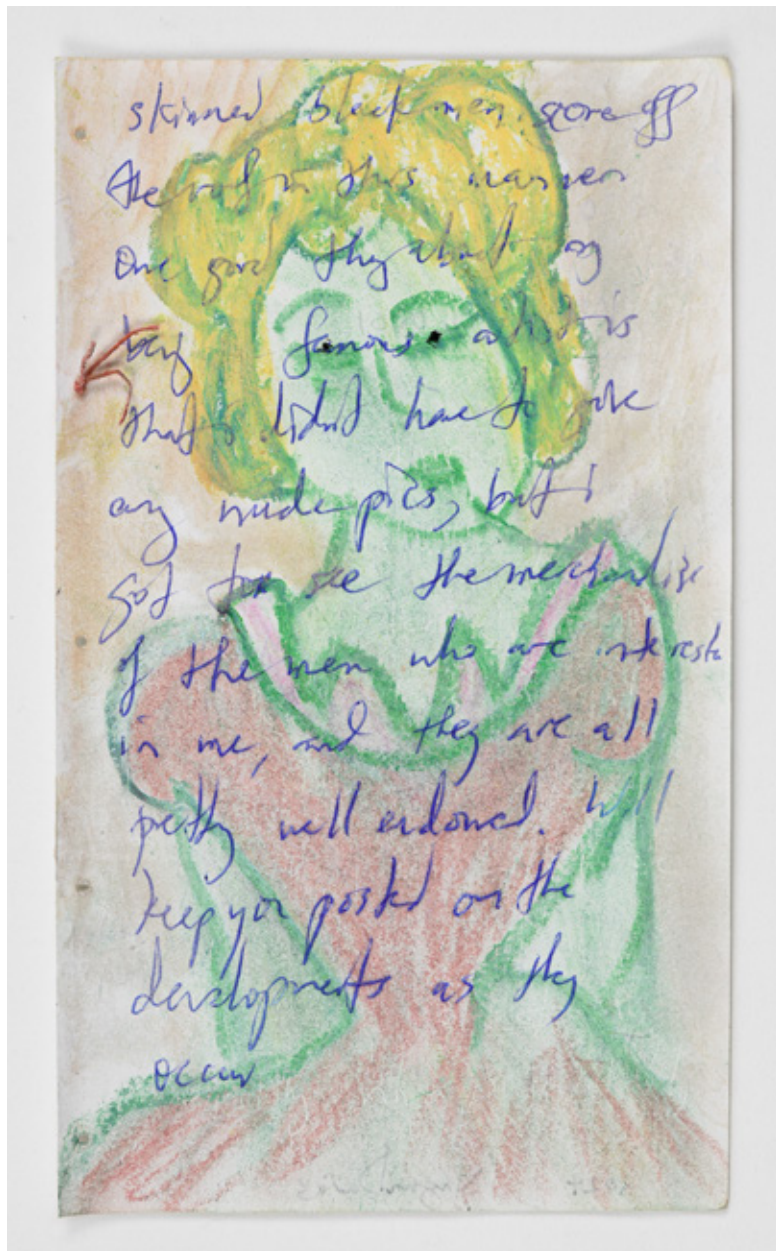 skinned black men. score off
the                this manner
One good thg about my
beng famous artist is
that i didnt have to give
any nude pics, but i
got to see the merchandize
of the men who are intereste
in me, and they are all
pretty well endowed. will
keep you posted on the
developments as they
occur